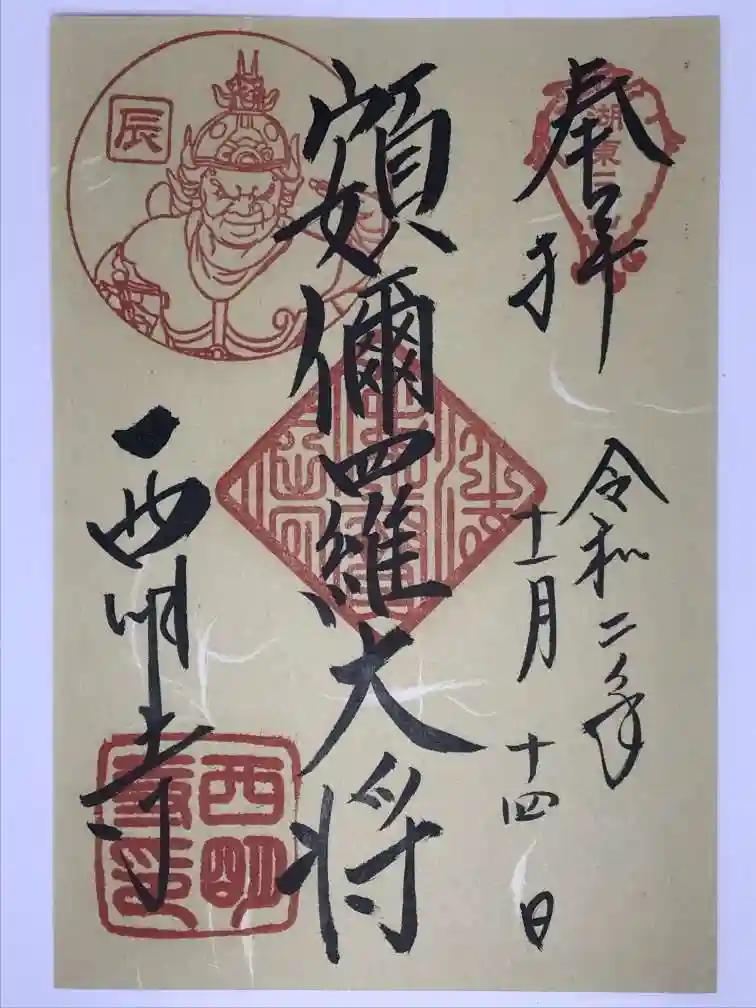 奉拝
湖東三山
令和二年
十一月十四日
頞儞羅大将
辰
西明寺
西明寺印